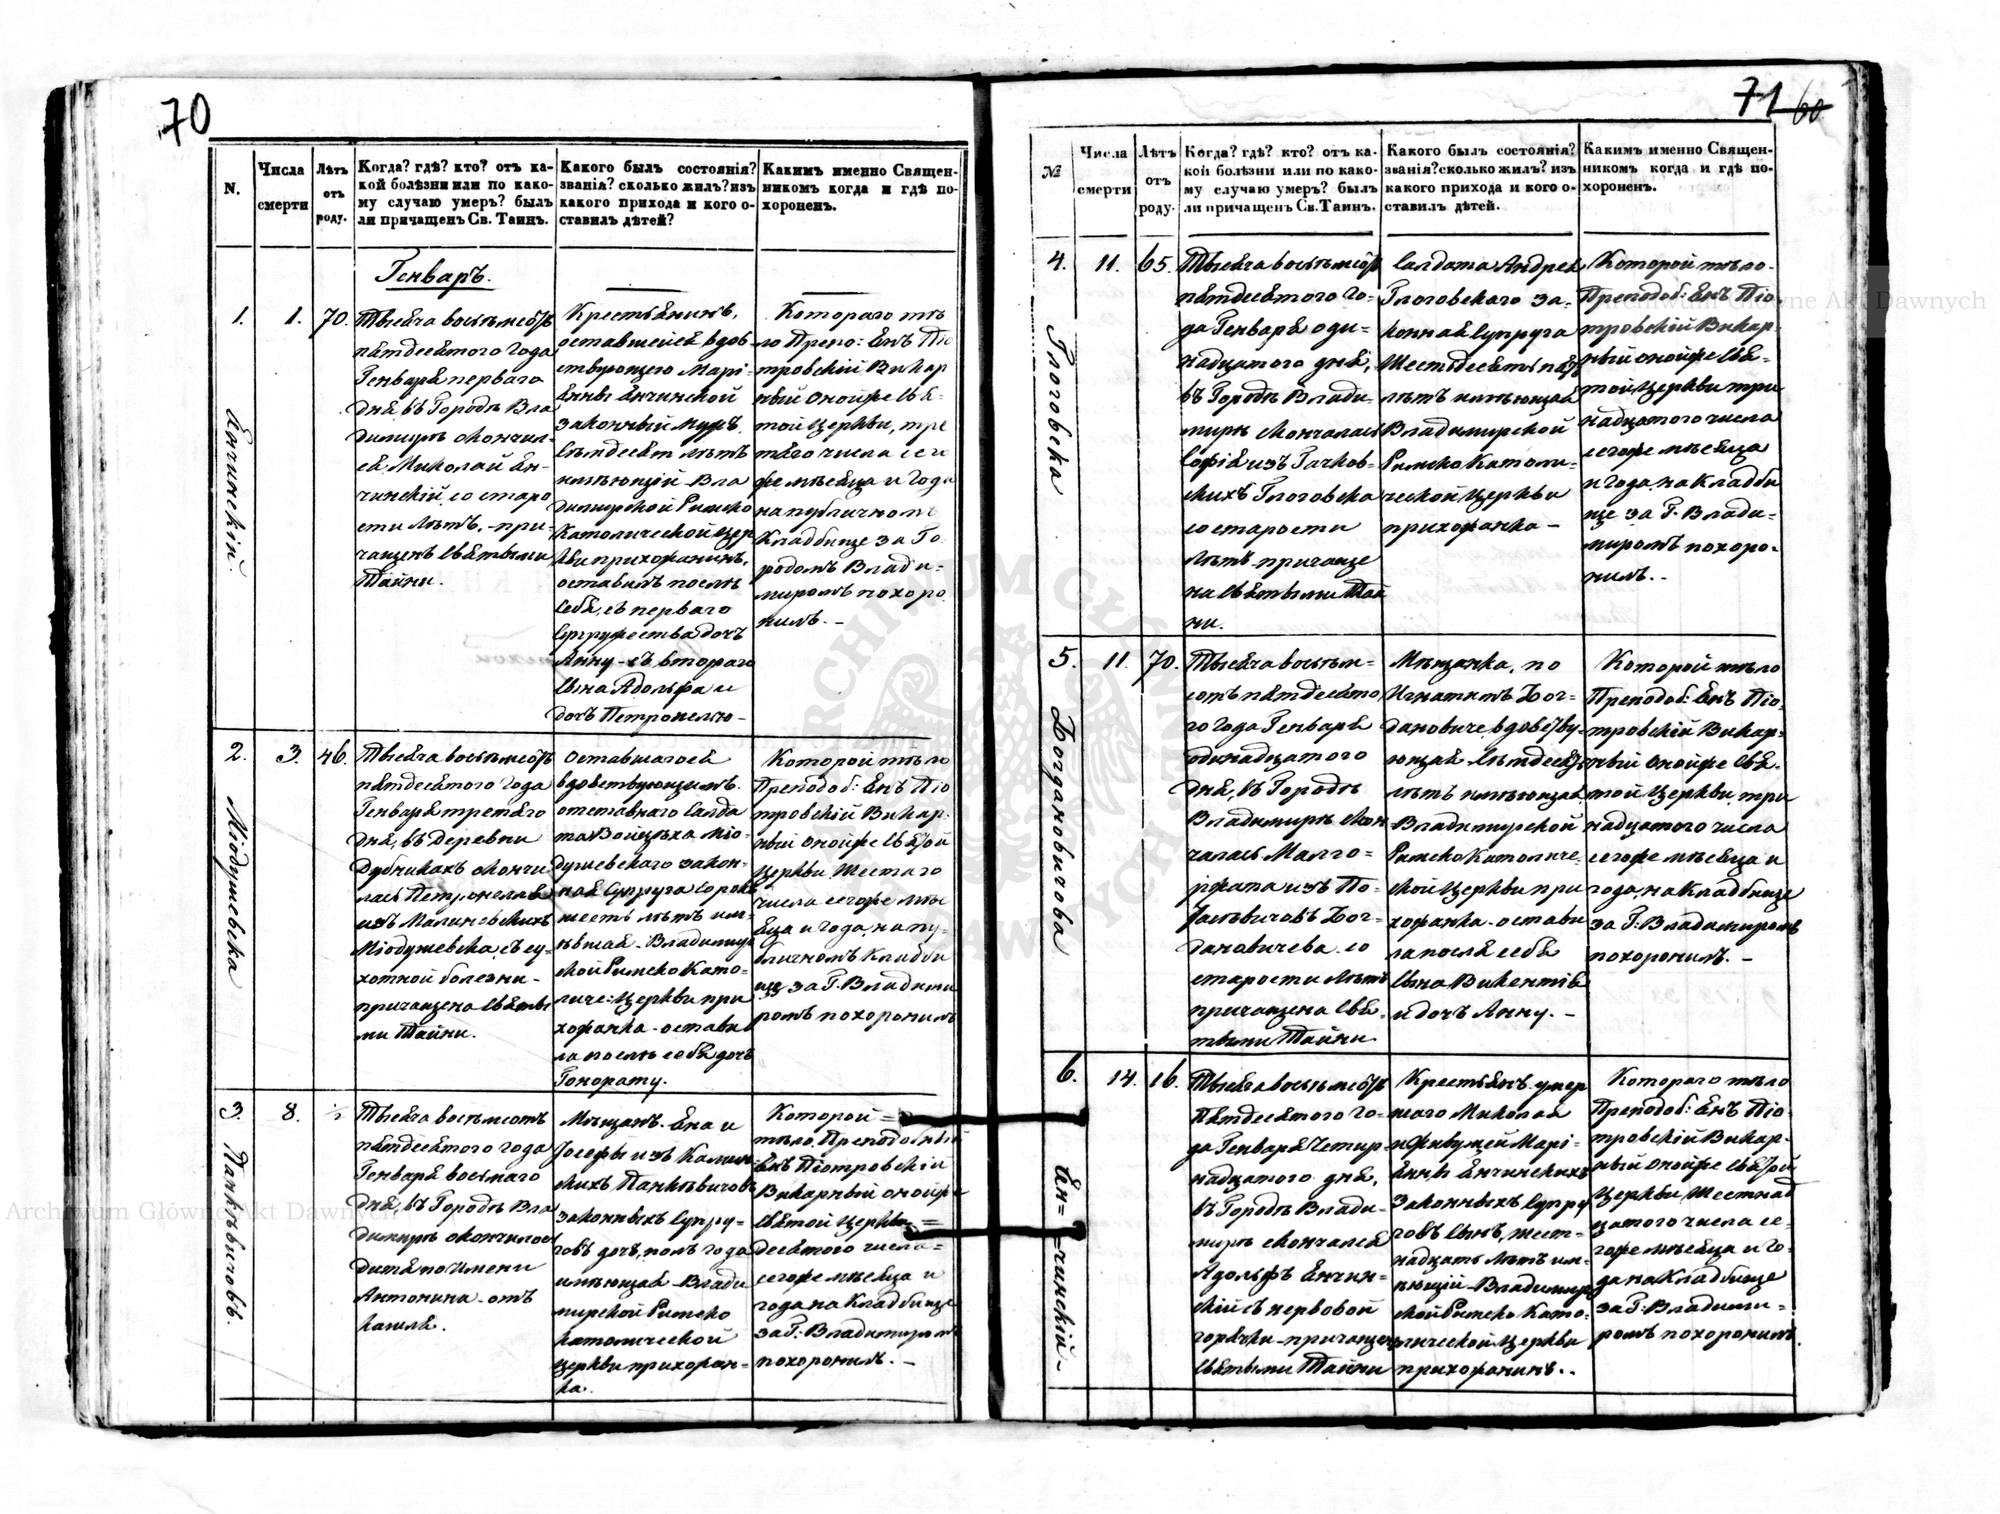 70
N.
Числа
смерти
Лѣтъ
отъ
роду.
Когда? гдѣ? кто? отъ ка-
кой болѣзни или по како-
му случаю умеръ? былъ
ли причащенъ Св. Таинъ.
Какого былъ состоянія?
званія? сколько жилъ? изъ
какого прихода и кого о-
ставилъ дѣтей?
Какимъ именно Священ-
никомъ когда и гдѣ по-
хороненъ.
Генварь.
1.
Янчинскій
1.
70.
Тысяча восьмсотъ
пятдесятого Года
Генваря перваго
дня, въ Городѣ Вла
димирѣ скончил-
ся Миколай Ян-
чинскій, со старо
сти лѣтъ, - при-
чащенъ святыми
Тайни.
Крестьянинъ,
оставшейся вдов-
ствующего Марі-
янны Янчинской
законный мужъ
семдесят лѣтъ
имѣющій Вла
димирской Римско
Католической Цер
кви прихожанинъ,
оставилъ послѣ
себя, съ перваго
супружества дочъ
Анну - съ втораго
сына Адольфа и
дочъ Петронелю -
Котораго тѣ
ло Препо: Янъ Піо
тровскій Викар
ный онойже свя-
той Церкви, тре
тяго числа сего
же мѣсяца и Года
на публичномъ
Кладбище за Го-
родомъ Влади-
миромъ похоро
нилъ. -
2.
Міодушевска
3.
46.
Тысяча восьмсотъ
пятдесятого Года
Генваря третяго
дня, въ Деревни
Дубникахъ скончи
лась Петронеля
изъ Малиновскихъ
Міодушевска, съ су-
хотной болезни -
причащена святы
ми Тайни.
Оставшагося
вдовствующимъ
отставнаго Салда
та Войцѣха Міо-
душевскаго закон-
ная супруга сорокъ
шесть лѣтъ им-
ѣвшая - Владимир
ской Римско Като-
личе: Церкви при
хожанка - остави
ла послѣ себя дочъ
Гонорату.
Которой тѣло
Преподоб: Янъ Піо
тровскій Викар-
ный онойже святой
Церкви Шестаго
числа сегоже мѣс
яца и года, на пу-
бличномъ Кладби
ще за Г. Владими
ромъ похоронилъ
3.
Панкѣвичовъ.
8.
½
Тысяча восьмсотъ
пятдесятого года
Генваря восьмаго
дня, въ Городѣ Вла
димирѣ скончилось
дитя по имени
Антонина - отъ
кашля.
Мѣщанъ. Яна и
Іосефы изъ Калин-
скихъ Панкѣвичовъ
законныхъ супру-
говъ дочъ, полъ года
имѣющая - Влади
мирской Римско
католической
церкви прихожан-
ка.
Которой =
тѣло, Преподобный
Янъ Піотровскій
Викарный онойже
святой Церкви =
десятого числа -
сегоже мѣсяца и
года на Кладбище
за Г. Владимиромъ
похоронилъ. -
71 60
№
Числа
смерти
Лѣтъ
отъ
роду.
Когда? гдѣ? кто? отъ ка-
кой болѣзни или по како-
му случаю умеръ? былъ
ли причащенъ Св. Таинъ.
Какого былъ состоянія?
званія? сколько жилъ? изъ
какого прихода и кого о-
ставилъ дѣтей.
Какимъ именно Священ-
никомъ когда и гдѣ по-
хороненъ.
4.
Глоговска
11.
65.
Тысяча восьмсотъ
пятдесятого Го-
да Генваря оди-
надцатого дня,
въ Городѣ Влади-
мирѣ скончалась
Софія изъ Гачков-
скихъ Глоговска
со старости
лѣтъ - причаще
на святыми Тай
ни.
Салдата Андрея
Глоговскаго за-
конная супруга
Шестьдесять пять
лѣтъ имѣющая
Владимирской
Римско Католи-
ческой Церкви
прихожанка -
Которой тѣло-
Преподоб: Янъ Піо
тровскій Викар-
ный онойже свя-
той Церкви три
надцатого числа
сегоже мѣсяца
и года, на Кладби
ще за Г. Влади-
миромъ похоро-
нилъ. -
5.
Богдановичова
11.
70.
Тысяча восьм-
сотъ пятдесято
го Года Генваря
одинадцатого
дня, въ Городѣ
Владимирѣ скон
чалась Малго-
ржата изъ По-
Богдановичева со
старости лѣтъ
причащена свя-
тыми Тайни
Мѣщанка, по
Игнатимъ Бог-
дановиче, вдовству-
ющая семдесятъ
лѣтъ имѣющая
Владимирской
Римско Католиче-
ской Церкви при
хожанка - остави
ла послѣ себя
сына Викентія
и дочъ Анну. -
Которой тѣло
Преподоб: Янъ Піо-
тровскій Викар-
ный онойже свя-
той Церкви, три
надцатого числа
сегоже мѣсяца и
года, на Кладбище
за Г. Владимиромъ
похоронилъ. -
6.
Ян= =чинскій -
14.
16.
Тысяча восьмсотъ
Пятдесятого Го-
да Генваря Четыр-
надцатого дня,
въ Городѣ Влади-
мирѣ скончался
Адольфъ Янчин-
скій съ нервовой
горячки - причащенъ
святыми Тайни
Крестьянъ. умер
шаго Миколая
и живущей Марі-
янны Янчинскихъ
Законныхъ супру
говъ сынъ, шест-
надцать лѣтъ им-
ѣющій - Владимир
ской Римско Като-
лической Церкви
прихожанинъ. -
Котораго тѣло
Преподоб: Янъ Піо-
тровскій Викар-
ный онойже святой
Церкви, Шестнад
цатого числа се-
гоже мѣсяца и Го-
да на Кладбище
за Г. Владими-
ромъ похоронилъ.
Archiwum Główne Akt Dawnych
Archiwum Główne Akt Dawnych
ARCHIWUM GŁÓWNE AKT DAWNYCH